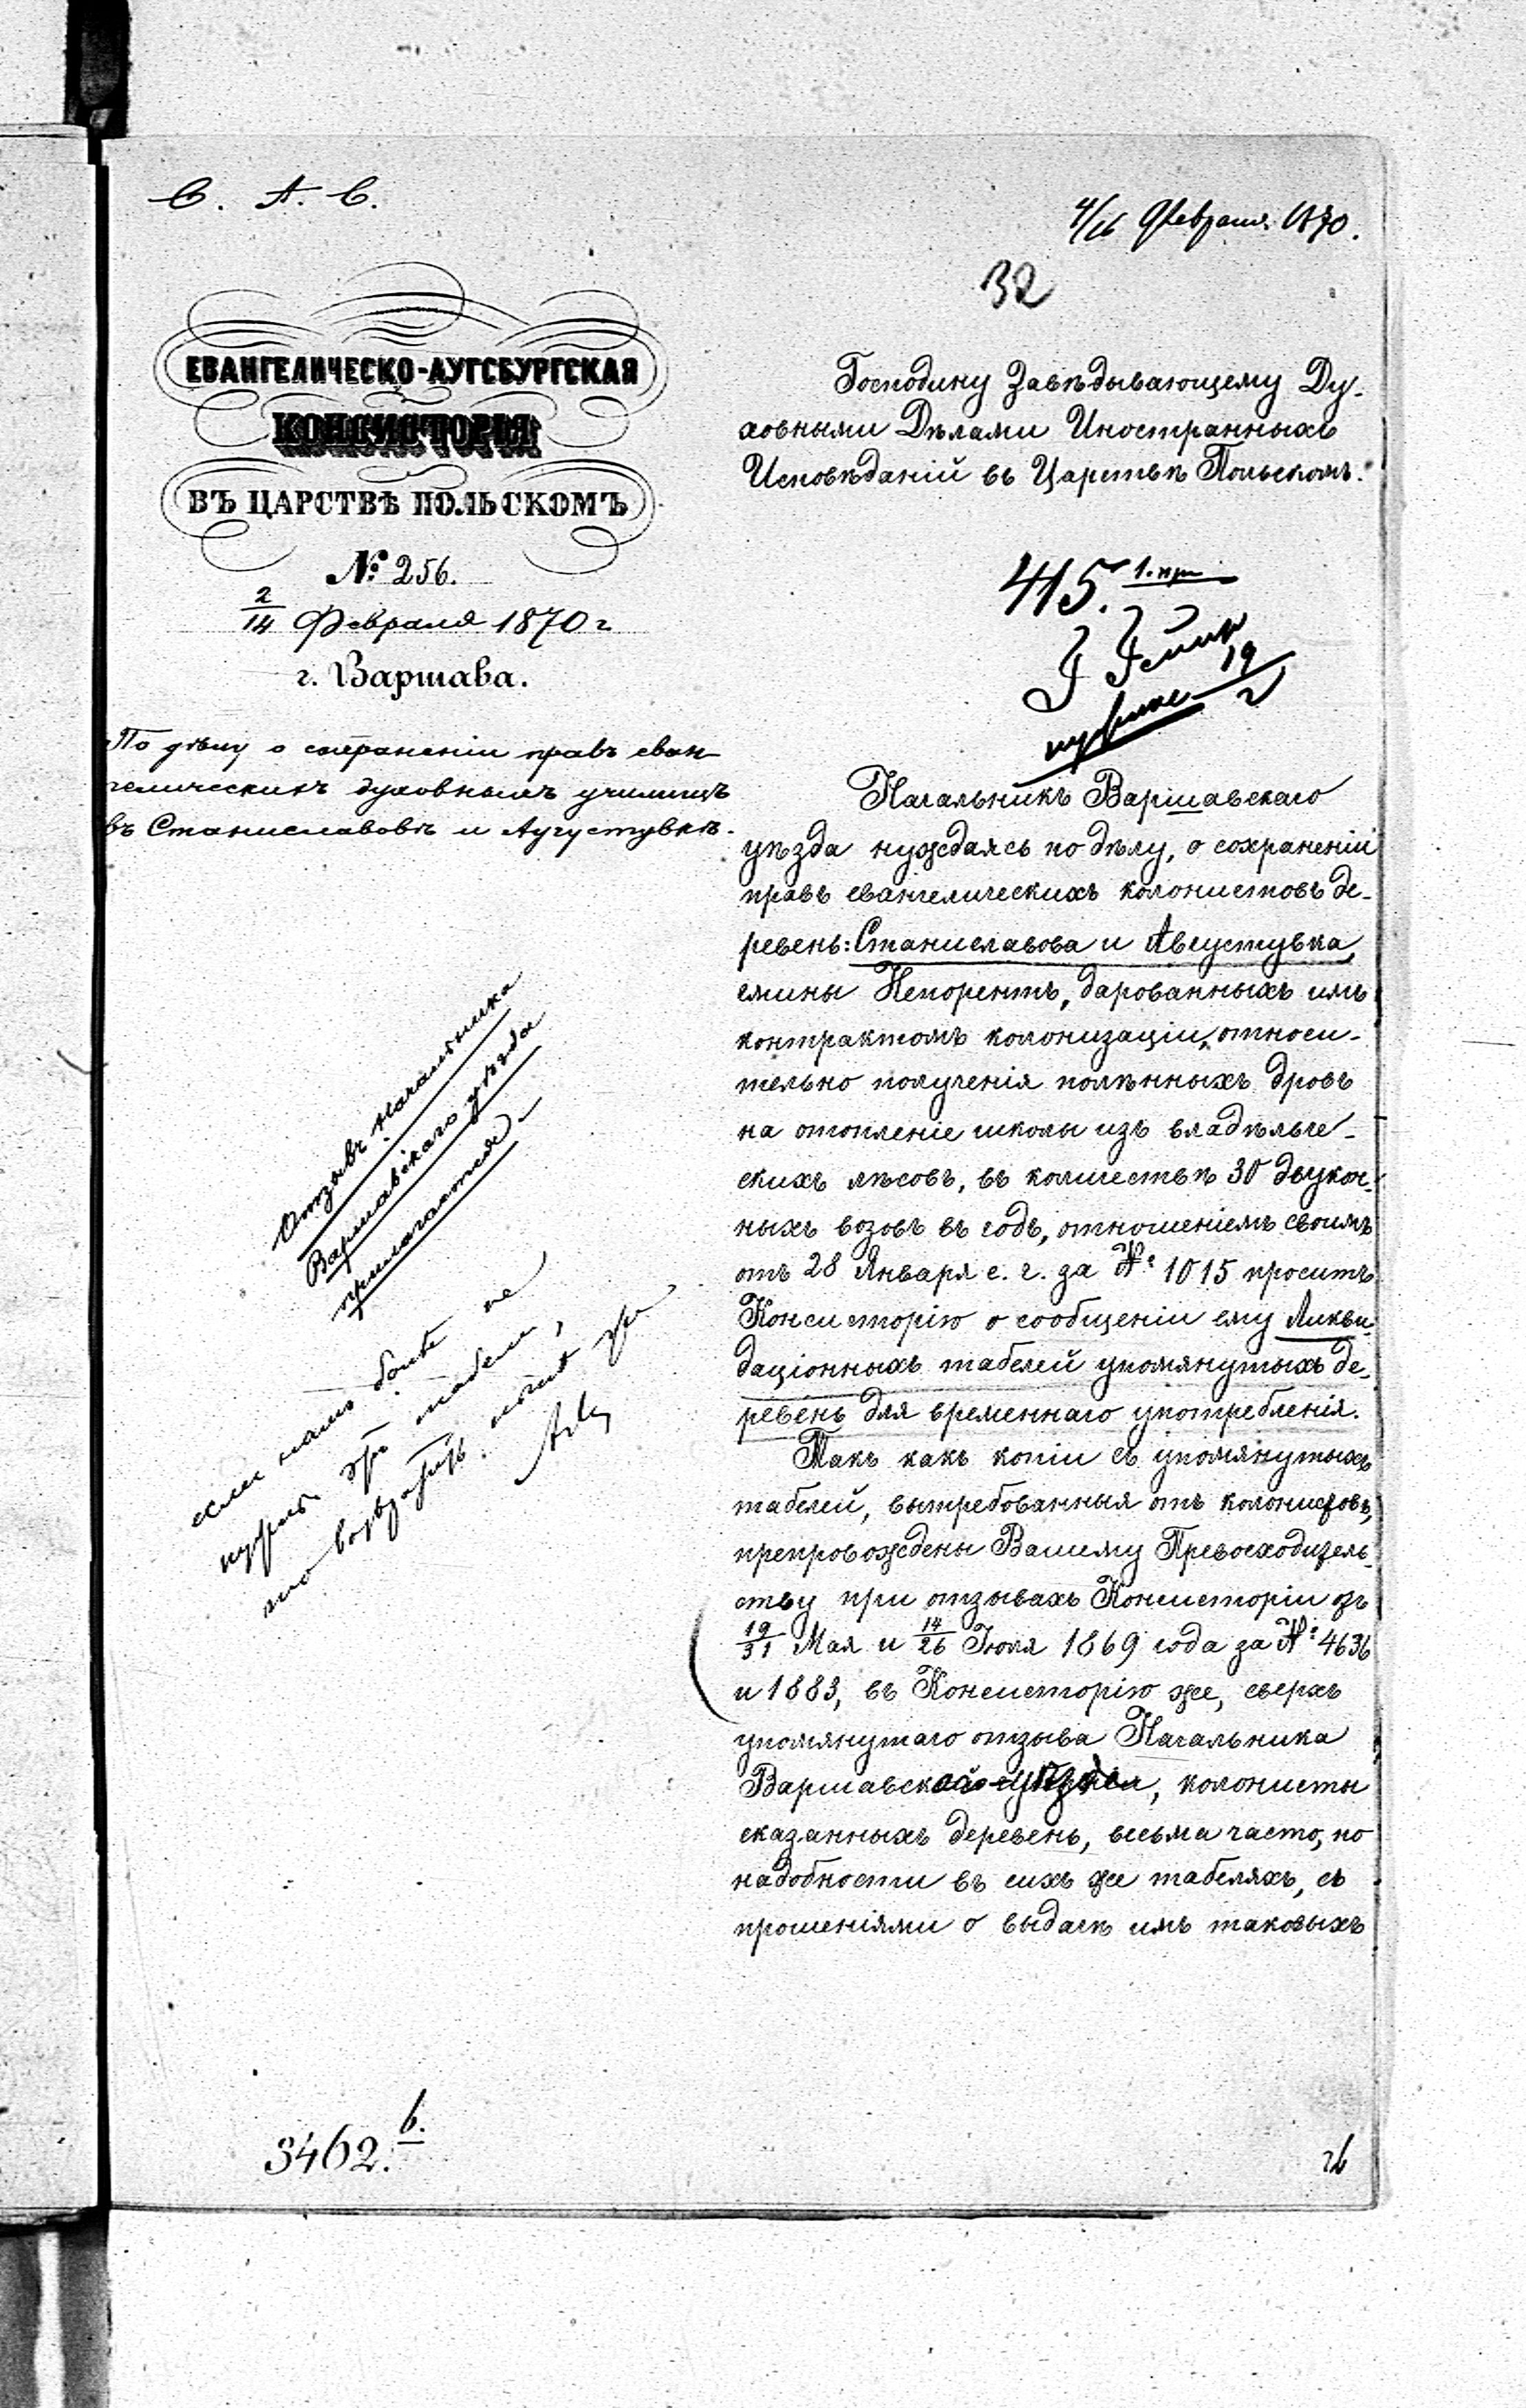 С. А. С.
4/16 Февраля 1870.
32
ЕВАНГЕЛИЧЕСКО-АУГСБУРГСКАЯ
КОНСИСТОРІЯ
ВЪ ЦАРСТВѢ ПОЛЬСКОМЪ
№ 256.
2/14 Февраля 1870 г
г. Варшава.
По дѣлу о сохраненіи правъ еван-
гелическихъ духовныхъ училищъ
въ Станиславовѣ и Аугустувкѣ.
Господину Завѣдывающему Ду-
ховными Дѣлами Иностранныхъ
Исповѣданій въ Царствѣ Польскомъ.
415. 1. пр
19/2
Начальникъ Варшавскаго
уѣзда нуждаясь по дѣлу, о сохраненіи
правъ евангелическихъ колонистовъ де-
ревень: Станиславова и Августувка,
гмины Непорентъ, дарованныхъ имъ
контрактомъ колонизаціи, относи-
тельно полученія полѣнныхъ дровъ
на отопленіе школы изъ владѣльче-
скихъ лѣсовъ, въ количествѣ 30 двукон-
ныхъ возовъ въ годъ, отношеніемъ своимъ
отъ 28 Января с. г. за № 1015 проситъ
Консисторію о сообщеніи ему Ликви-
даціонныхъ табелей упомянутыхъ де-
ревень для временнаго употребленія.
Такъ какъ копіи съ упомянутыхъ
табелей, вытребованныя отъ колонистовъ,
препровождены Вашему Превосходитель-
ству при отзывахъ Консисторіи отъ
19/31 Мая и 14/26 Іюля 1869 года за № 4636
и 1883, въ Консисторію же, сверхъ
упомянутаго отзыва Начальника
Варшавскаго уѣзда, колонисты
сказанныхъ деревень, весьма часто, по
надобности въ сихъ же табеляхъ, съ
прошеніями о выдачѣ имъ таковыхъ
Отзывъ Начальника
Варшавскаго уѣзда
прилагается.
если намъ болѣе не
нужны эти табели,
то возвратить
3462. b.